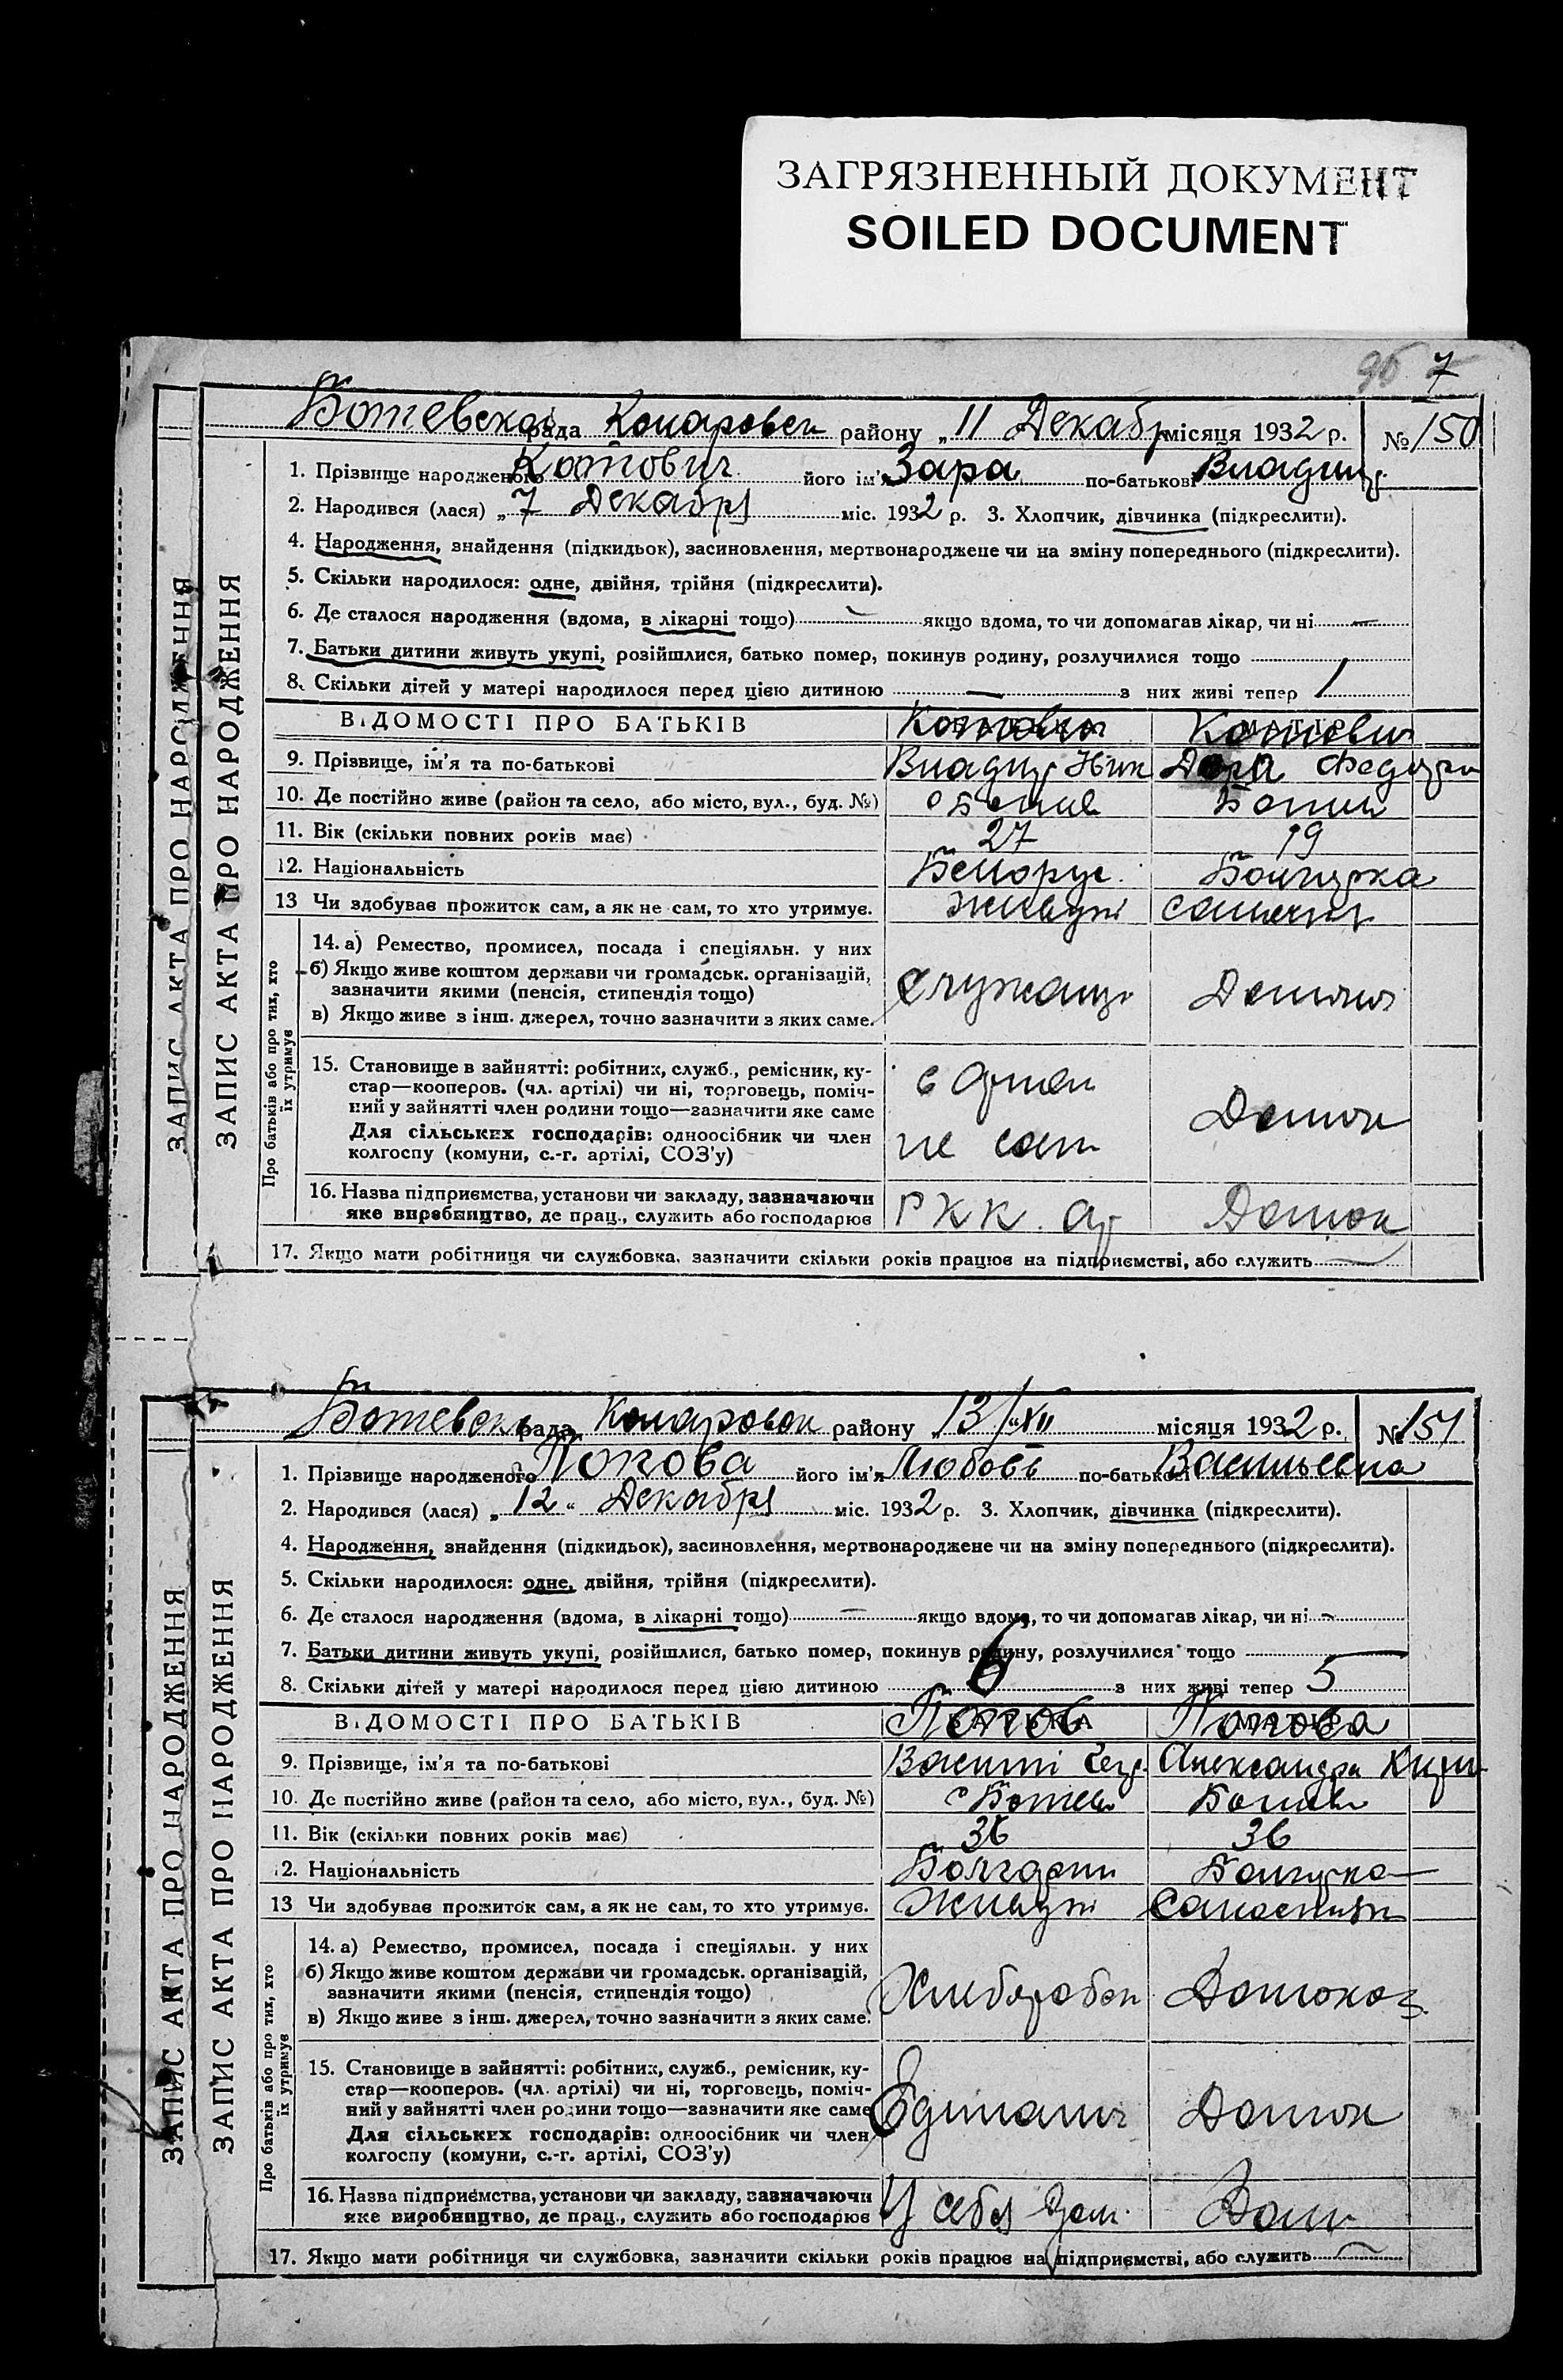 ЗАГРЯЗНЕННЫЙ ДОКУМЕНТ
SOILED DOCUMENT
7
ЗАПИС АКТА ПРО НАРОДЖЕННЯ
ЗАПИС АКТА ПРО НАРОДЖЕННЯ
Ботевская рада Комаровск району „ 11 Декабр місяця 1932 р. № 150
1. Прізвище народженого Котович його ім'я Зара по-батькові Владим
2. Народився (лася) „ 7 Декабря міс. 1932 р. 3. Хлопчик, дівчинка (підкреслити).
4. Народження, знайдення (підкидьок), засиновлення, мертвонароджене чи на зміну попереднього (підкреслити).
5. Скільки народилося: одне, двійня, трійня (підкреслити).
6. Де сталося народження (вдома, в лікарні тощо) — якщо вдома, то чи допомагав лікар, чи ні —
7. Батьки дитини живуть укупі, розійшлися, батько помер, покинув родину, розлучилися тощо
8. Скільки дітей у матері народилося перед цією дитиною — з них живі тепер 1
ВІДОМОСТІ ПРО БАТЬКІВ Котович Котович
9. Прізвище, ім'я та по-батькові Владим Ник Дора Федоров
10. Де постійно живе (район та село, або місто, вул., буд. №) с Ботиев Ботиев
11. Вік (скільки повних років має) 27 19
12. Національність Белорус. Болгарка
13 Чи здобуває прожиток сам, а як не сам, то хто утримує. живут
Про батьків або про тих, хто їх утримує
14. а) Ремество, промисел, посада і спеціяльн. у них
б) Якщо живе коштом держави чи громадськ. організацій,
зазначити якими (пенсія, стипендія тощо) служащ Домохоз
в) Якщо живе з інш. джерел, точно зазначити з яких саме.
15. Становище в зайнятті: робітник, служб., ремісник, ку-
стар—кооперов. (чл. артілі) чи ні, торговець, поміч-
ний у зайнятті член родини тощо—зазначити яке саме Домох
Для сільських господарів: одноосібник чи член
колгоспу (комуни, с.-г. артілі, СОЗ'у)
16. Назва підприємства, установи чи закладу, зазначаючи
яке виробництво, де прац., служить або господарює РКК. Ар Домох
17. Якщо мати робітниця чи службовка, зазначити скільки років працює на підприємстві, або служить
ЗАПИС АКТА ПРО НАРОДЖЕННЯ
ЗАПИС АКТА ПРО НАРОДЖЕННЯ
Ботевск рада Комаровск району „ 13/XII місяця 1932 р. № 151
1. Прізвище народженого Попова його ім'я Любовь по-батькові Васильевна
2. Народився (лася) „ 12 “ Декабря міс. 1932 р. 3. Хлопчик, дівчинка (підкреслити).
4. Народження, знайдення (підкидьок), засиновлення, мертвонароджене чи на зміну попереднього (підкреслити).
5. Скільки народилося: одне, двійня, трійня (підкреслити).
6. Де сталося народження (вдома, в лікарні тощо) — якщо вдома, то чи допомагав лікар, чи ні —
7. Батьки дитини живуть укупі, розійшлися, батько помер, покинув родину, розлучилися тощо
8. Скільки дітей у матері народилося перед цією дитиною 6 з них живі тепер 5
ВІДОМОСТІ ПРО БАТЬКІВ Попов Попова
9. Прізвище, ім'я та по-батькові Васили Александра Кирил
10. Де постійно живе (район та село, або місто, вул., буд. №) с Ботиев Ботиев
11. Вік (скільки повних років має) 36 36
12. Національність Болгарин Болгарка
13 Чи здобуває прожиток сам, а як не сам, то хто утримує. Живут
Про батьків або про тих, хто їх утримує
14. а) Ремество, промисел, посада і спеціяльн. у них
б) Якщо живе коштом держави чи громадськ. організацій,
зазначити якими (пенсія, стипендія тощо) Хлибороб Домохоз
в) Якщо живе з інш. джерел, точно зазначити з яких саме.
15. Становище в зайнятті: робітник, служб., ремісник, ку-
стар—кооперов. (чл. артілі) чи ні, торговець, поміч-
ний у зайнятті член родини тощо—зазначити яке саме Единолич Домох
Для сільських господарів: одноосібник чи член
колгоспу (комуни, с.-г. артілі, СОЗ'у)
16. Назва підприємства, установи чи закладу, зазначаючи
яке виробництво, де прац., служить або господарює У себя дом. Дом
17. Якщо мати робітниця чи службовка, зазначити скільки років працює на підприємстві, або служить